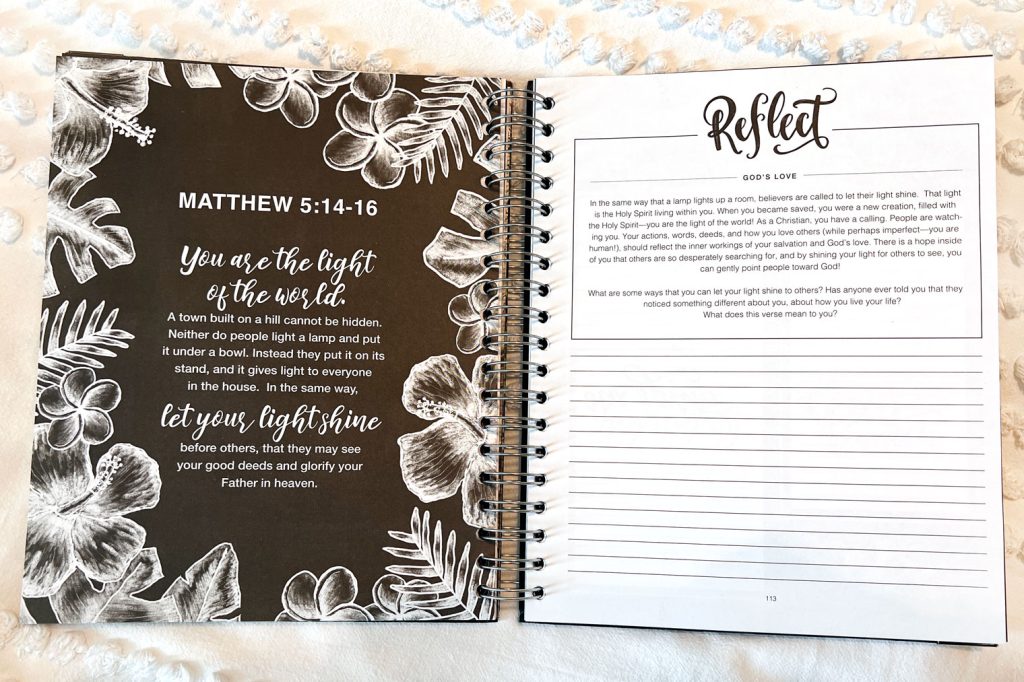 MATTHEW 5:14-16
You are the light
of the world.
A town built on a hill cannot be hidden.
Neither do people light a lamp and put
it under a bowl. Instead they put it on its
stand, and it gives light to everyone
in the house.  In the same way,
let your light shine
before others, that they may see
your good deeds and glorify your
Father in heaven.
Reflect
GOD'S LOVE
In the same way that a lamp lights up a room, believers are called to let their light shine.  That light
is the Holy Spirit living within you. When you became saved, you were a new creation, filled with
the Holy Spirit—you are the light of the world! As a Christian, you have a calling. People are watch-
ing you. Your actions, words, deeds, and how you love others (while perhaps imperfect—you are
human!), should reflect the inner workings of your salvation and God's love. There is a hope inside
of you that others are so desperately searching for, and by shining your light for others to see, you
can gently point people toward God!
What are some ways that you can let your light shine to others? Has anyone ever told you that they
noticed something different about you, about how you live your life?
What does this verse mean to you?
113